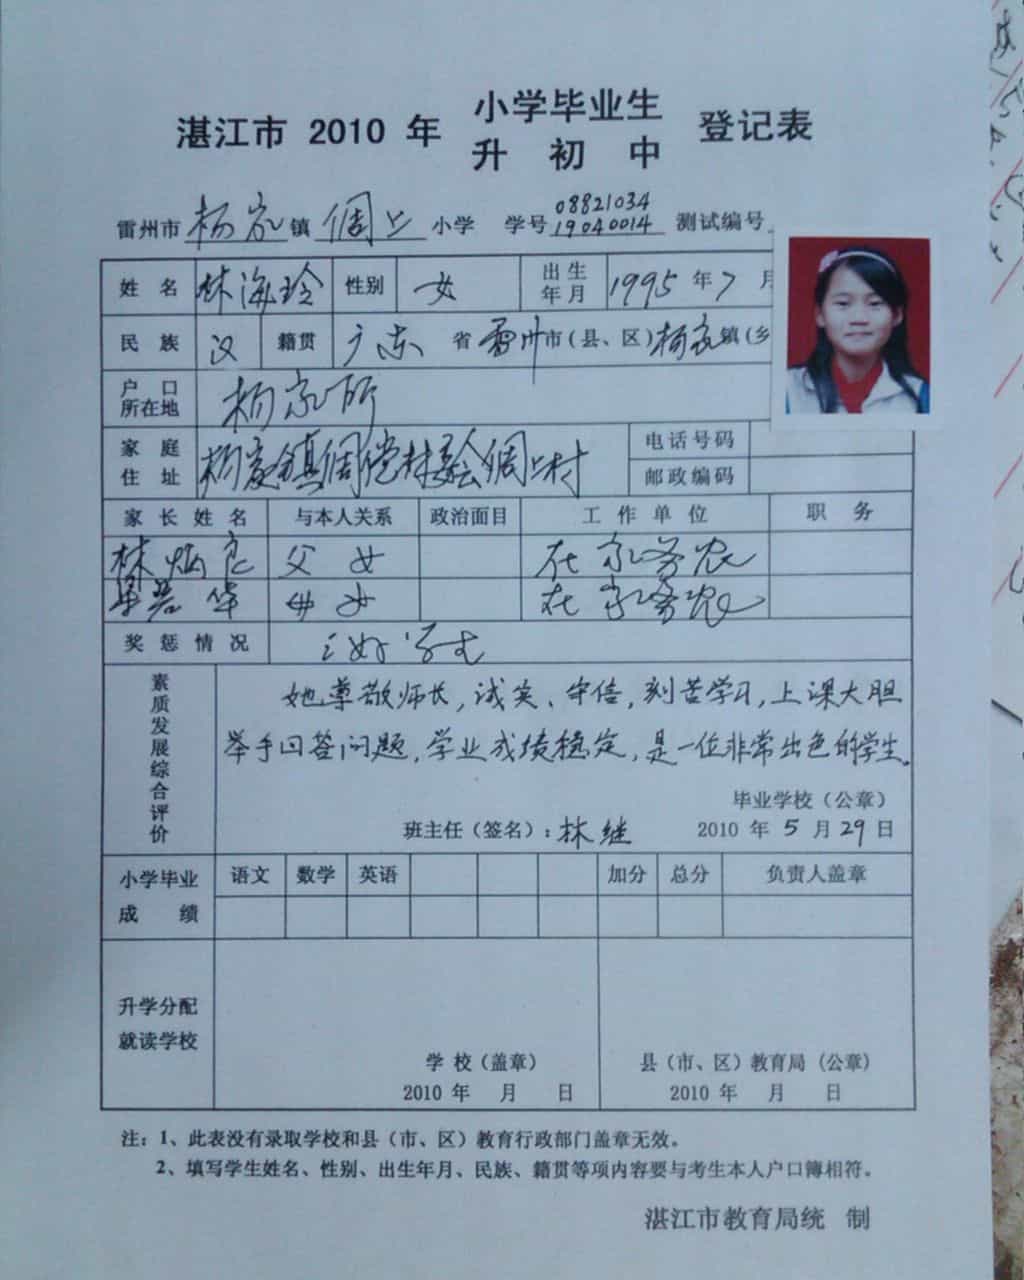 湛江市 2010 年 小学毕业生 升 初 中 登记表
08821034
雷州市 杨家 镇 倜上 小学 学号 19040014 测试编号
姓 名 林海玲 性别 女 出生年月 1995 年 7 月
民 族 汉 籍贯 广东 省 雷州 市(县、区) 杨家 镇(乡
户 口 所在地 杨家所
家 庭 住 址 杨家镇 倜上村 电话号码
邮政编码
家 长 姓 名 与本人关系 政治面目 工 作 单 位 职 务
林炳良 父 女 在 家务农
华 母 女 在 家务农
奖 惩 情 况 三好学生
素质发展综合评价
她尊敬师长,诚实、守信,刻苦学习,上课大胆
举手回答问题,学业成绩稳定,是一位非常出色的学生。
毕业学校(公章)
班主任(签名):林继 2010 年 5 月 29 日
小学毕业 成 绩 语文 数学 英语 加分 总分 负责人盖章
升学分配
就读学校
学 校(盖章) 县(市、区)教育局(公章)
2010 年 月 日 2010 年 月 日
注:1、此表没有录取学校和县(市、区)教育行政部门盖章无效。
2、填写学生姓名、性别、出生年月、民族、籍贯等项内容要与考生本人户口簿相符。
湛江市教育局统 制